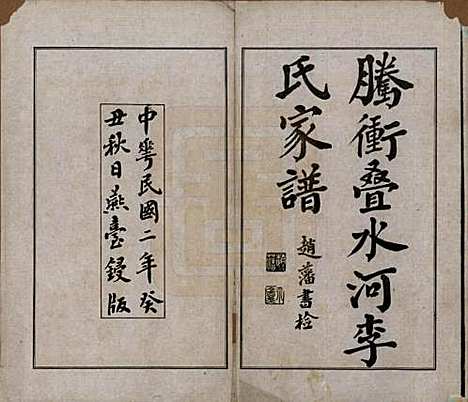 騰衝叠水河李
氏家譜
趙藩書檢
中華民國二年癸
丑秋日燕臺鋟版